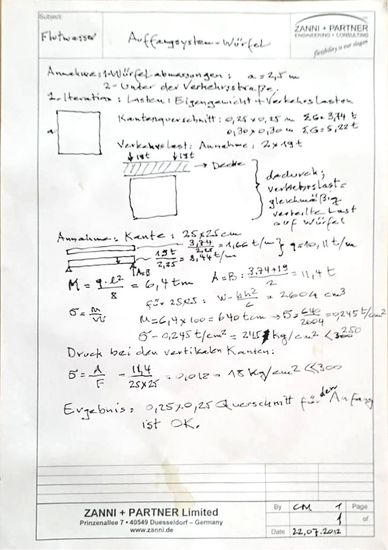 Subject:
Flutwasser Auffangsystem-Würfel
ZANNI + PARTNER
ENGINEERING + CONSULTING
flexibility is our slogan
Annahme: 1-Würfelabmessungen: a = 2,5 m
2- Unter der Verkehrsstraße.
1. Iteration: Lasten: Eigengewicht + Verkehrslasten
a
Kantenquerschnitt: 0,25 x 0,25 m ΣG= 3,74 t
0,30 x 0,30 m ΣG= 5,22 t
Verkehrslast: Annahme: 2x19t
19t 19t
Decke
dadurch;
verkehrslast
gleichmäßig
verteilte Last
auf Würfel
Annahme: Kante: 25x25cm
3,74/2,25 = 1,66 t/m
19t/2,25 = 8,44 t/m
q=10,11 t/m
A=B
M = q·l²/8 = 6,4 tm
A=B: 3,74+19/2 = 11,4 t
für 25x25: W= bh²/6 = 2604 cm³
σ= M/W
M= 6,4 x 100 = 640 tcm → σ= 640/2604 = 0,245 t/cm²
σ= 0,245 t/cm² = 245 kg/cm² <
Druck bei den vertikalen Kanten:
σ= A/F = 11,4/25x25 = 0,018 = 18 kg/cm² < 300
Ergebnis: 0,25x0,25 Querschnitt für den Anfang
ist OK.
ZANNI + PARTNER Limited
Prinzenallee 7 • 40549 Duesseldorf – Germany
www.zanni.de
By CM 1 Page
1 of
Date 22,07.2012